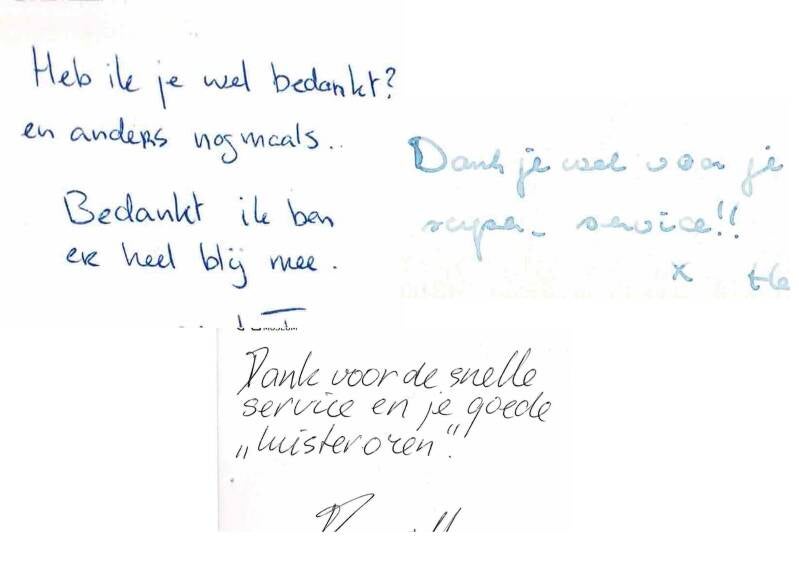 Heb ik je wel bedankt?
en anders nogmaals..
Bedankt ik ben
er heel blij mee.
Dank je wel voor je
super-service!!
x
Dank voor de snelle
service en je goede
„luisteroren".